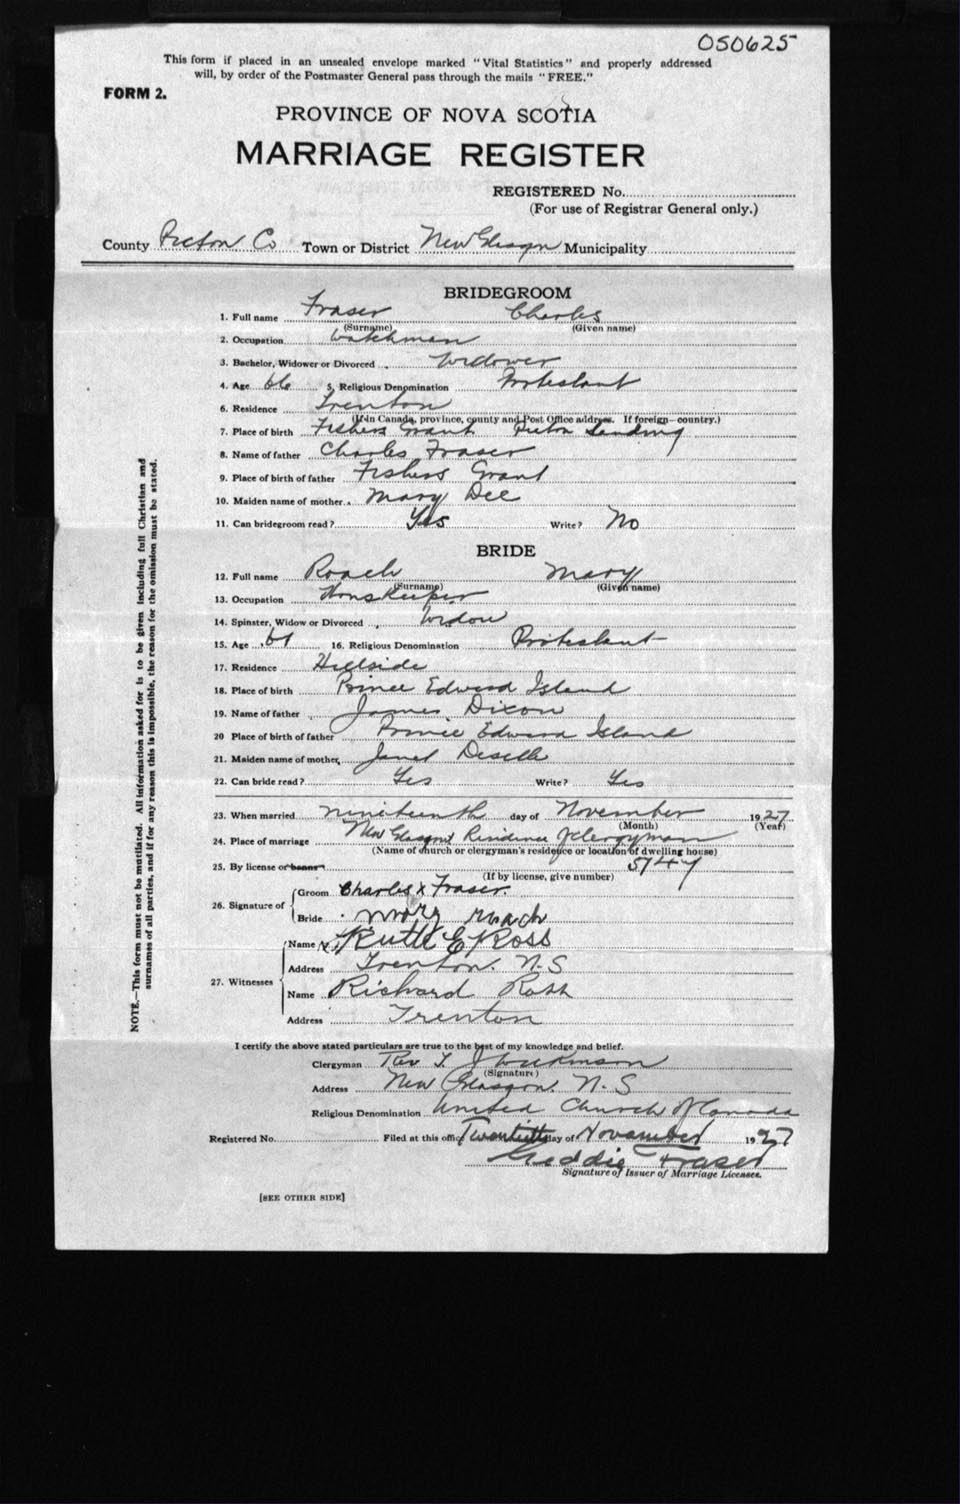 050625
This form if placed in an unsealed envelope marked "Vital Statistics" and properly addressed
will, by order of the Postmaster General pass through the mails "FREE."
FORM 2.
PROVINCE OF NOVA SCOTIA
MARRIAGE REGISTER
REGISTERED No.
(For use of Registrar General only.)
County Pictou Co Town or District New Glasgow Municipality
BRIDEGROOM
1. Full name Fraser Charles
(Surname) (Given name)
2. Occupation Watchman
3. Bachelor, Widower or Divorced Widower
4. Age 66 5. Religious Denomination Protestant
6. Residence Trenton
(If in Canada, province, county and Post Office address. If foreign—country.)
7. Place of birth Fishers Grant Pictou Landing
8. Name of father Charles Fraser
9. Place of birth of father Fishers Grant
10. Maiden name of mother Mary Dee
11. Can bridegroom read? Yes Write? No
BRIDE
12. Full name Roach Mary
(Surname) (Given name)
13. Occupation Housekeeper
14. Spinster, Widow or Divorced Widow
15. Age 61 16. Religious Denomination Protestant
17. Residence Hillside
18. Place of birth Prince Edward Island
19. Name of father James Dixon
20 Place of birth of father Prince Edward Island
21. Maiden name of mother Janet
22. Can bride read? Yes Write? Yes
23. When married nineteenth day of November 1927
(Month) (Year)
24. Place of marriage New Glasgow Residence of clergyman
(Name of church or clergyman's residence or location of dwelling house)
25. By license or banns 5747
(If by license, give number)
26. Signature of
Groom Charles X Fraser.
Bride mary roach
27. Witnesses
Name X Ruth E Ross
Address Trenton. N.S
Name Richard Ross
Address Trenton
I certify the above stated particulars are true to the best of my knowledge and belief.
Clergyman Rev T.
(Signature)
Address New Glasgow. N. S
Religious Denomination United Church of Canada
Registered No. Filed at this office Twentieth day of November 1927
Geddie Fraser
Signature of Issuer of Marriage Licenses.
[SEE OTHER SIDE]
NOTE.—This form must not be mutilated. All information asked for is to be given including full Christian and
surnames of all parties, and if for any reason this is impossible, the reason for the omission must be stated.